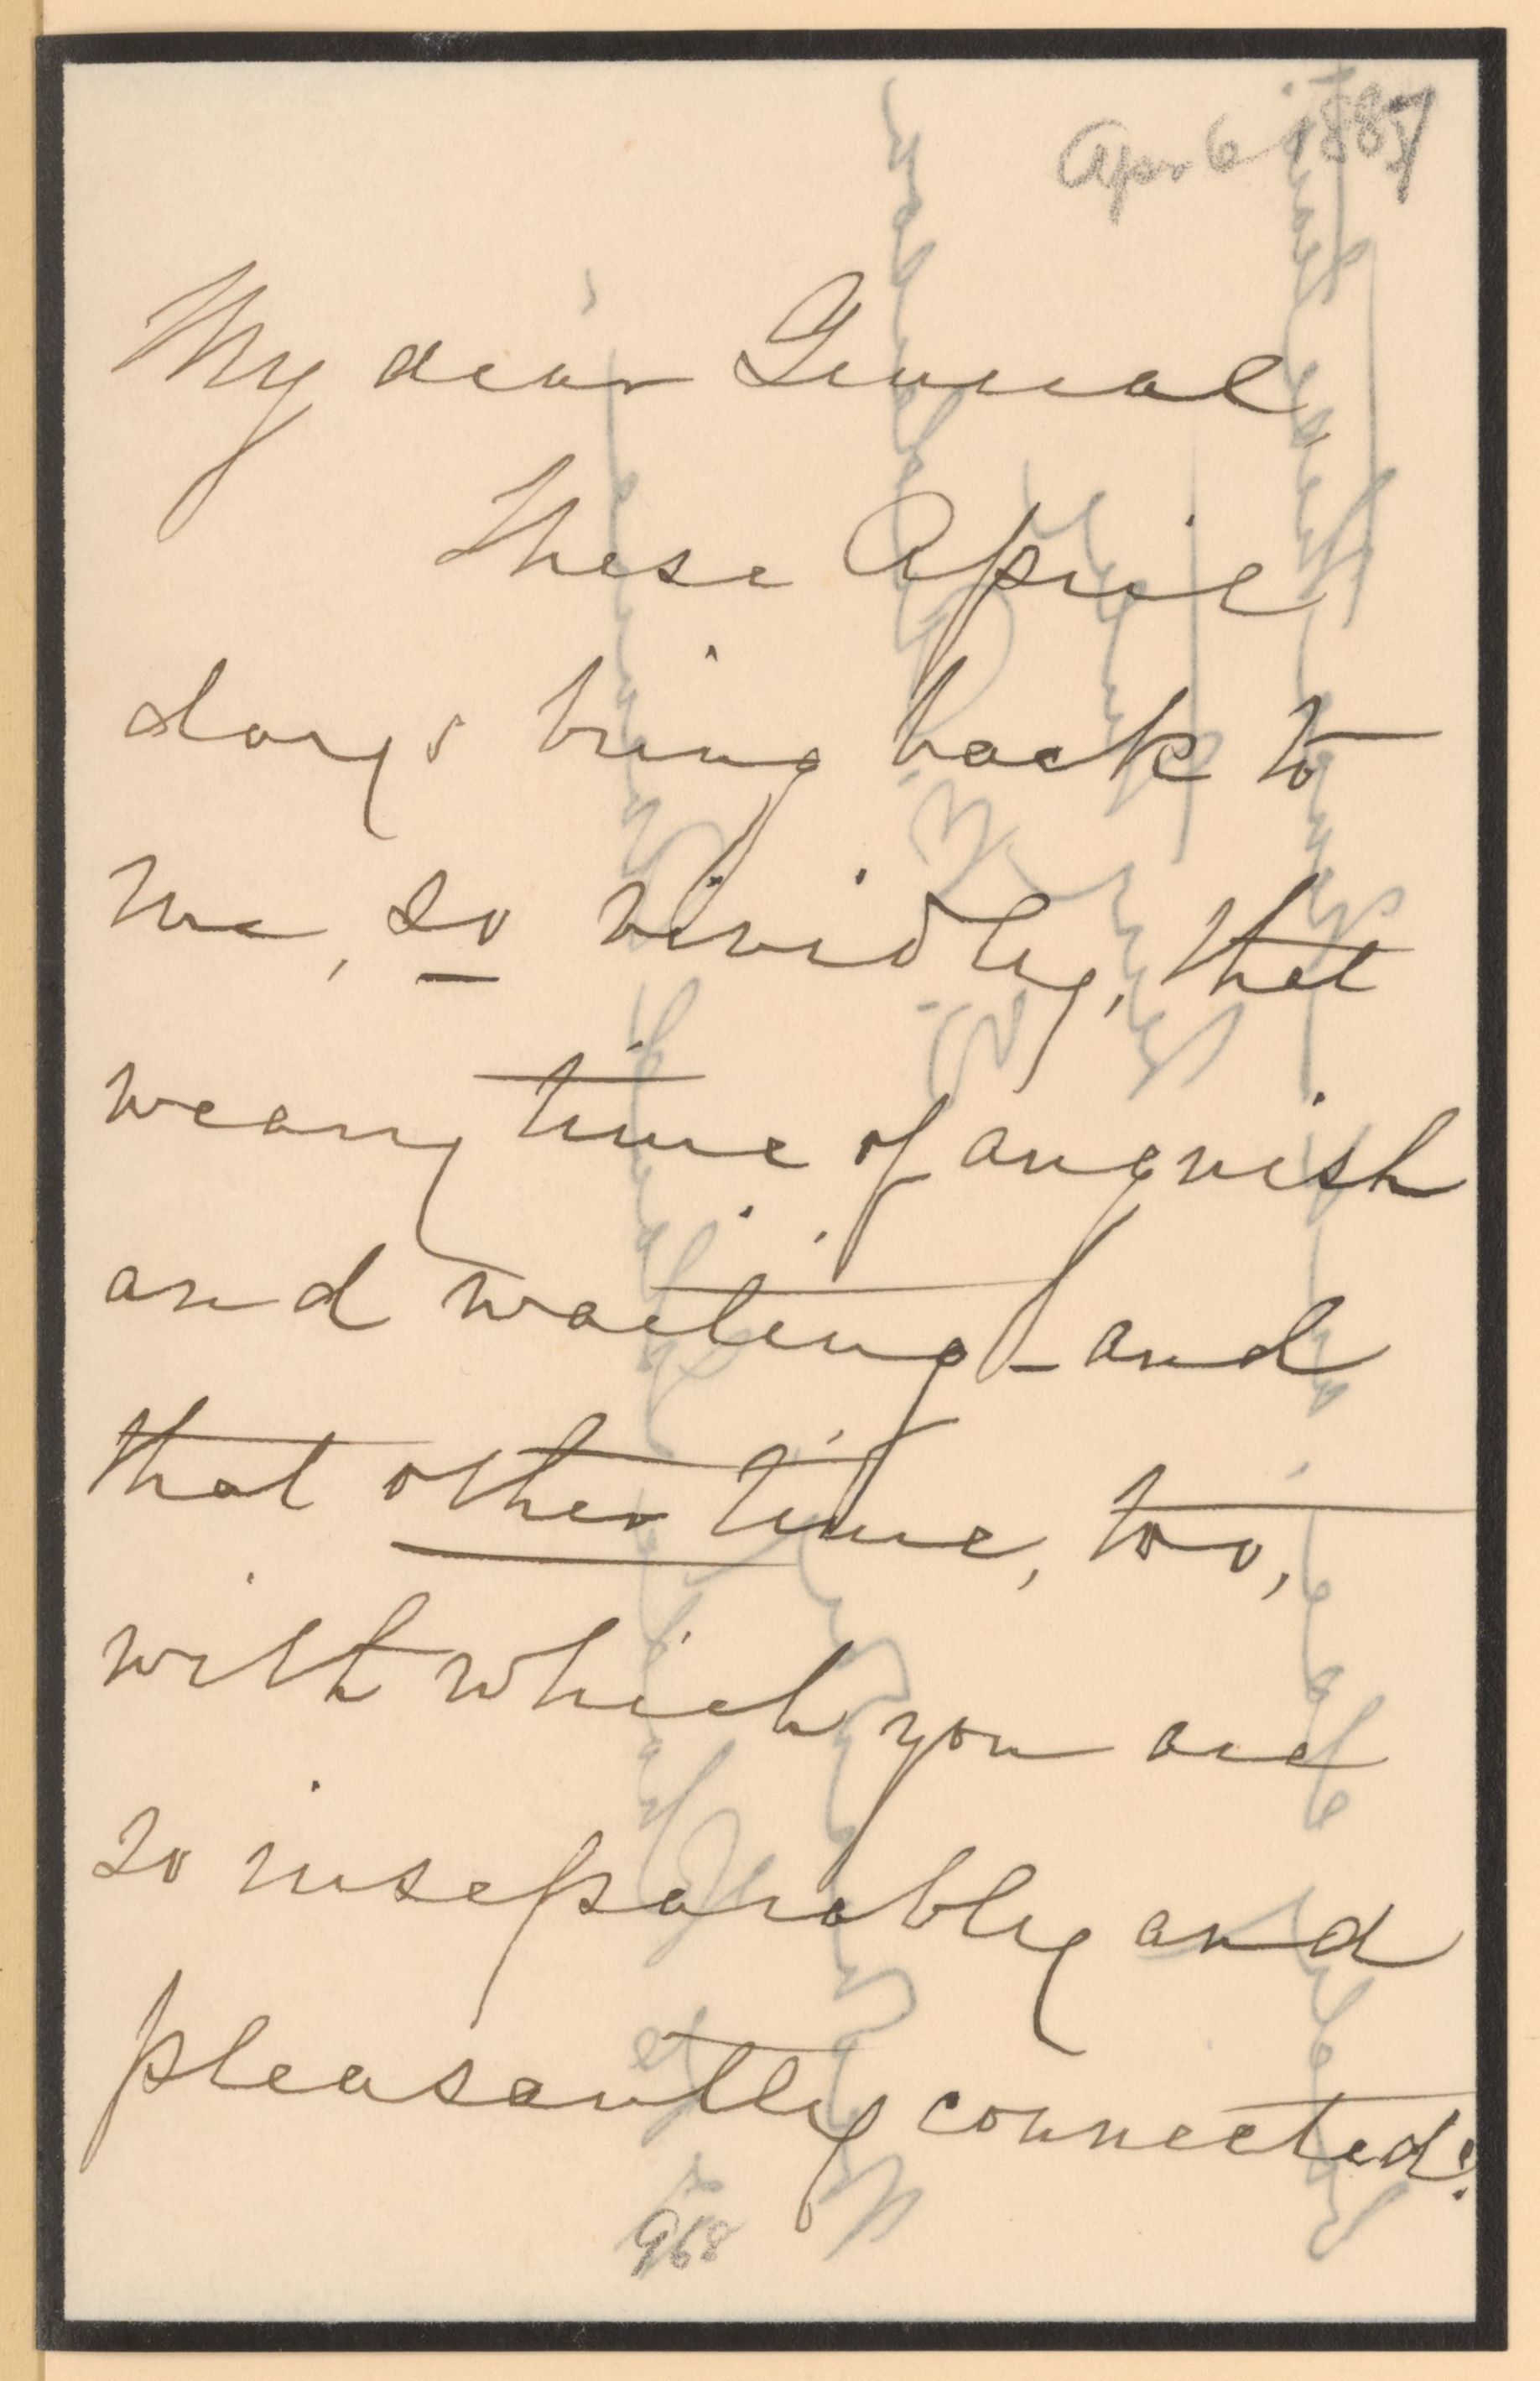 Apr 6 1887
My dear General,
These April
days bring back to
me, so vividly, that
weary time of anguish
and waiting - and
that other time, too,
with which you are
so inseparably and
pleasantly connected:
968